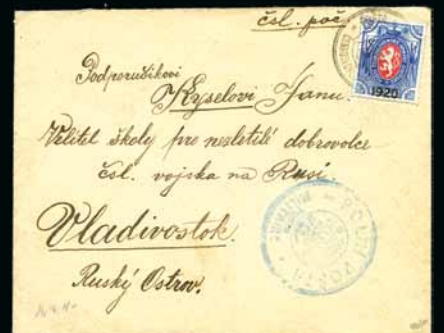 čsl. poč.
1920
Podporučíkovi
Kyselovi Janu.
Velitel školy pro nezletilé dobrovolce
čsl. vojska na Rusi.
Vladivostok.
Ruský Ostrov.